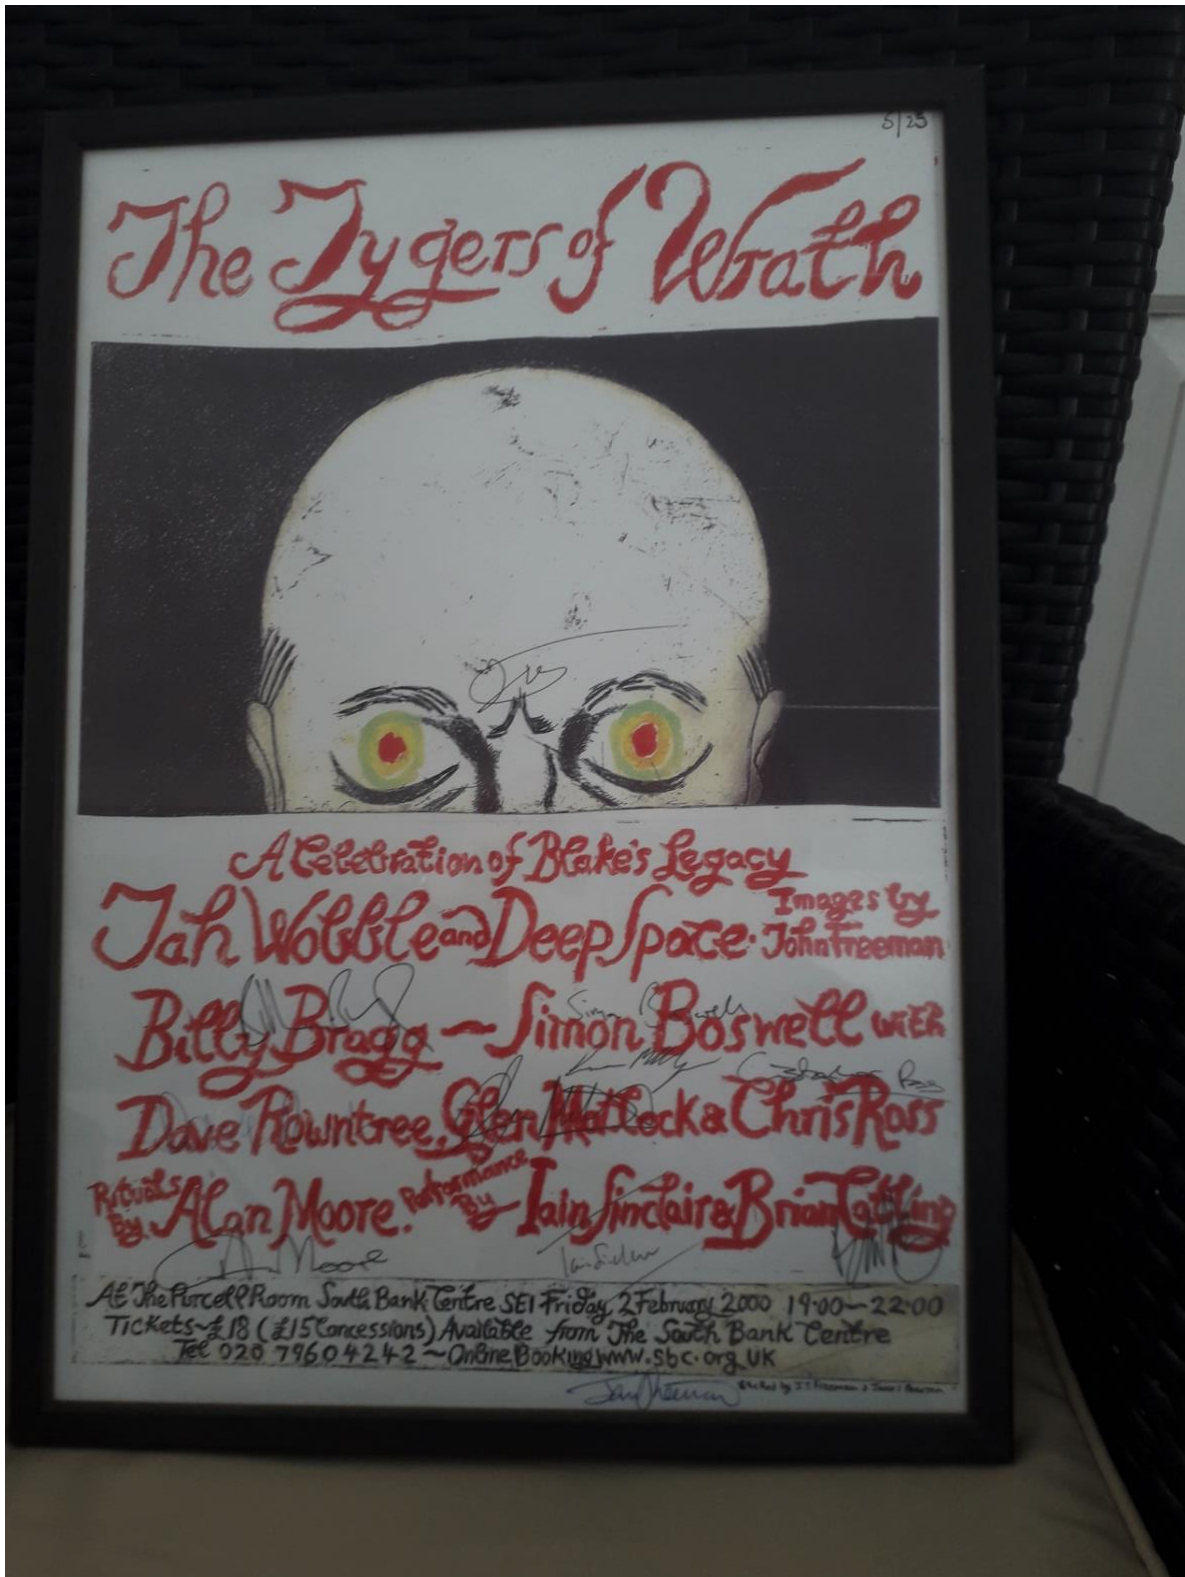 5/25
The Tygers of Wrath
A Celebration of Blake's Legacy
Jah Wobble and Deep Space · Images by John Freeman
Billy Bragg ~ Simon Boswell with
Dave Rowntree, Glen Matlock & Chris Ross
Rituals By Alan Moore. Performance By ~ Iain Sinclair & Brian Catling
At The Purcell Room South Bank Centre SE1 Friday 2 February 2000 19·00~22·00
Tickets~£18 (£15 Concessions) Available from The South Bank Centre
Tel 020 7960 4242 ~ Online Booking www.sbc.org.uk